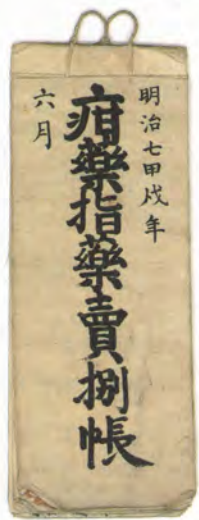 明治七甲戌年
疳藥指藥賣捌帳
六月